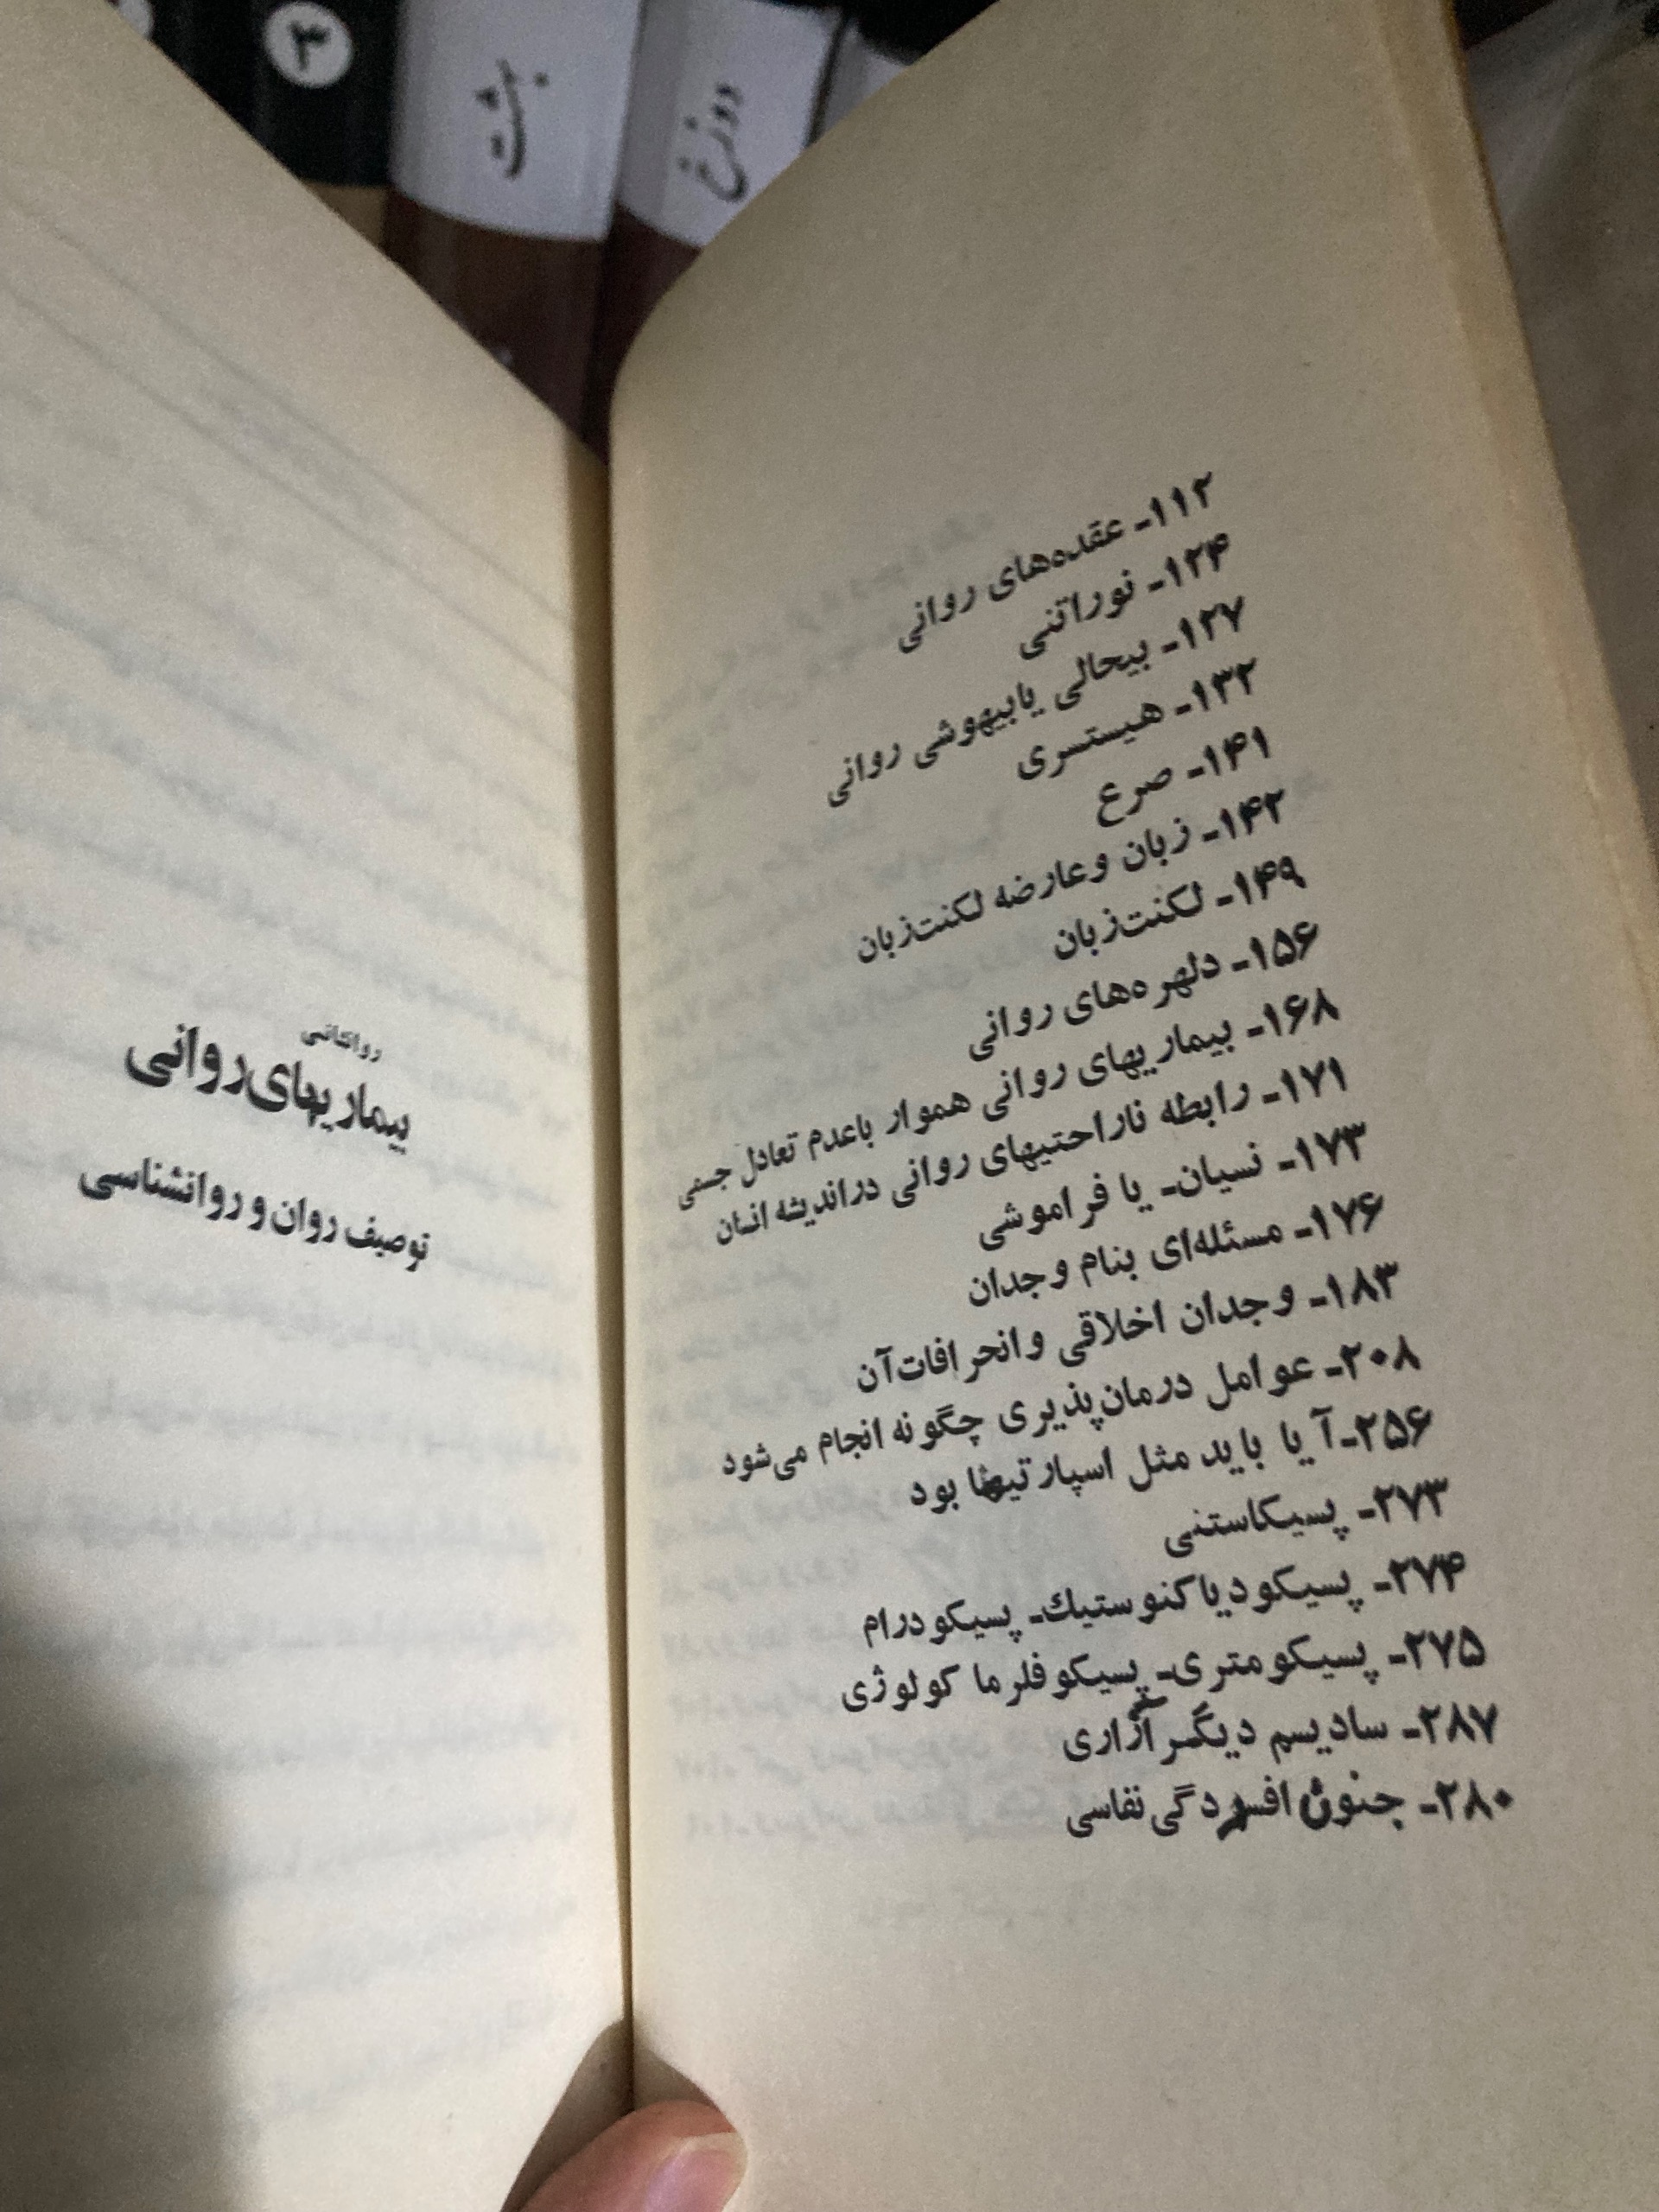 ۳
بهشت
دوزخ
۱۱۲- عقده‌های روانی
۱۲۴- نوراتنی
۱۲۷- بیحالی یابیهوشی روانی
۱۳۲- هیستری
۱۴۱- صرع
۱۴۲- زبان وعارضه لکنت‌زبان
۱۴۹- لکنت‌زبان
۱۵۶- دلهره‌های روانی
۱۶۸- بیماریهای روانی هموار باعدم تعادل جسمی
۱۷۱- رابطه ناراحتیهای روانی دراندیشه انسان
۱۷۳- نسیان- یا فراموشی
۱۷۶- مسئله‌ای بنام وجدان
۱۸۳- وجدان اخلاقی وانحرافات‌آن
۲۰۸- عوامل درمان‌پذیری چگونه انجام می‌شود
۲۵۶- آیا باید مثل اسپارتیها بود
۲۷۳- پسیکاستنی
۲۷۴- پسیکودیاکنوستیك- پسیکودرام
۲۷۵- پسیکومتری- پسیکوفلرما کولوژی
۲۸۷- سادیسم دیگرآزاری
۲۸۰- جنون افسردگی نفاسی
روانکانی
بیماریهای‌روانی
توصیف روان و روانشناسی